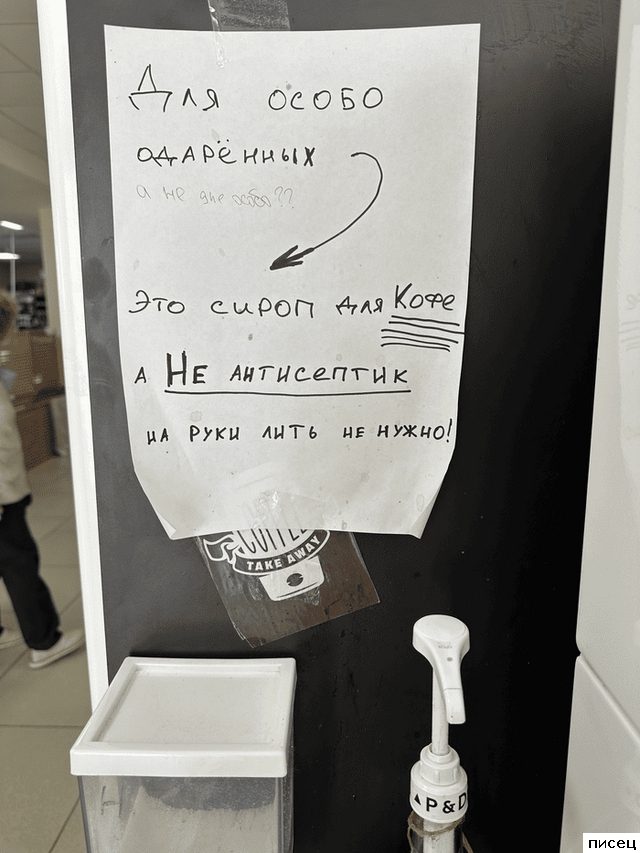 Для особо
одарённых
а не для особо??
Это сироп для Кофе
а Не антисептик
на руки лить не нужно!
COFFEE
TAKE AWAY
▲P&D
писец